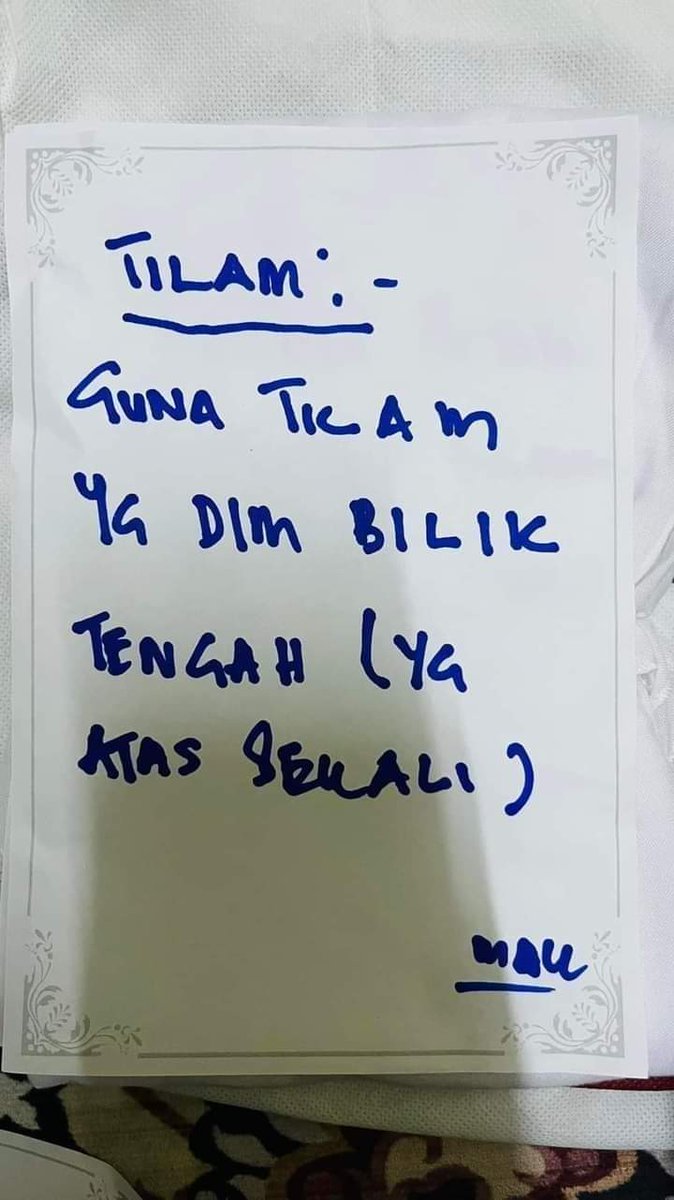 TILAM :-
GUNA TILAM
YG DLM BILIK
TENGAH (YG
ATAS SEKALI)
MAK